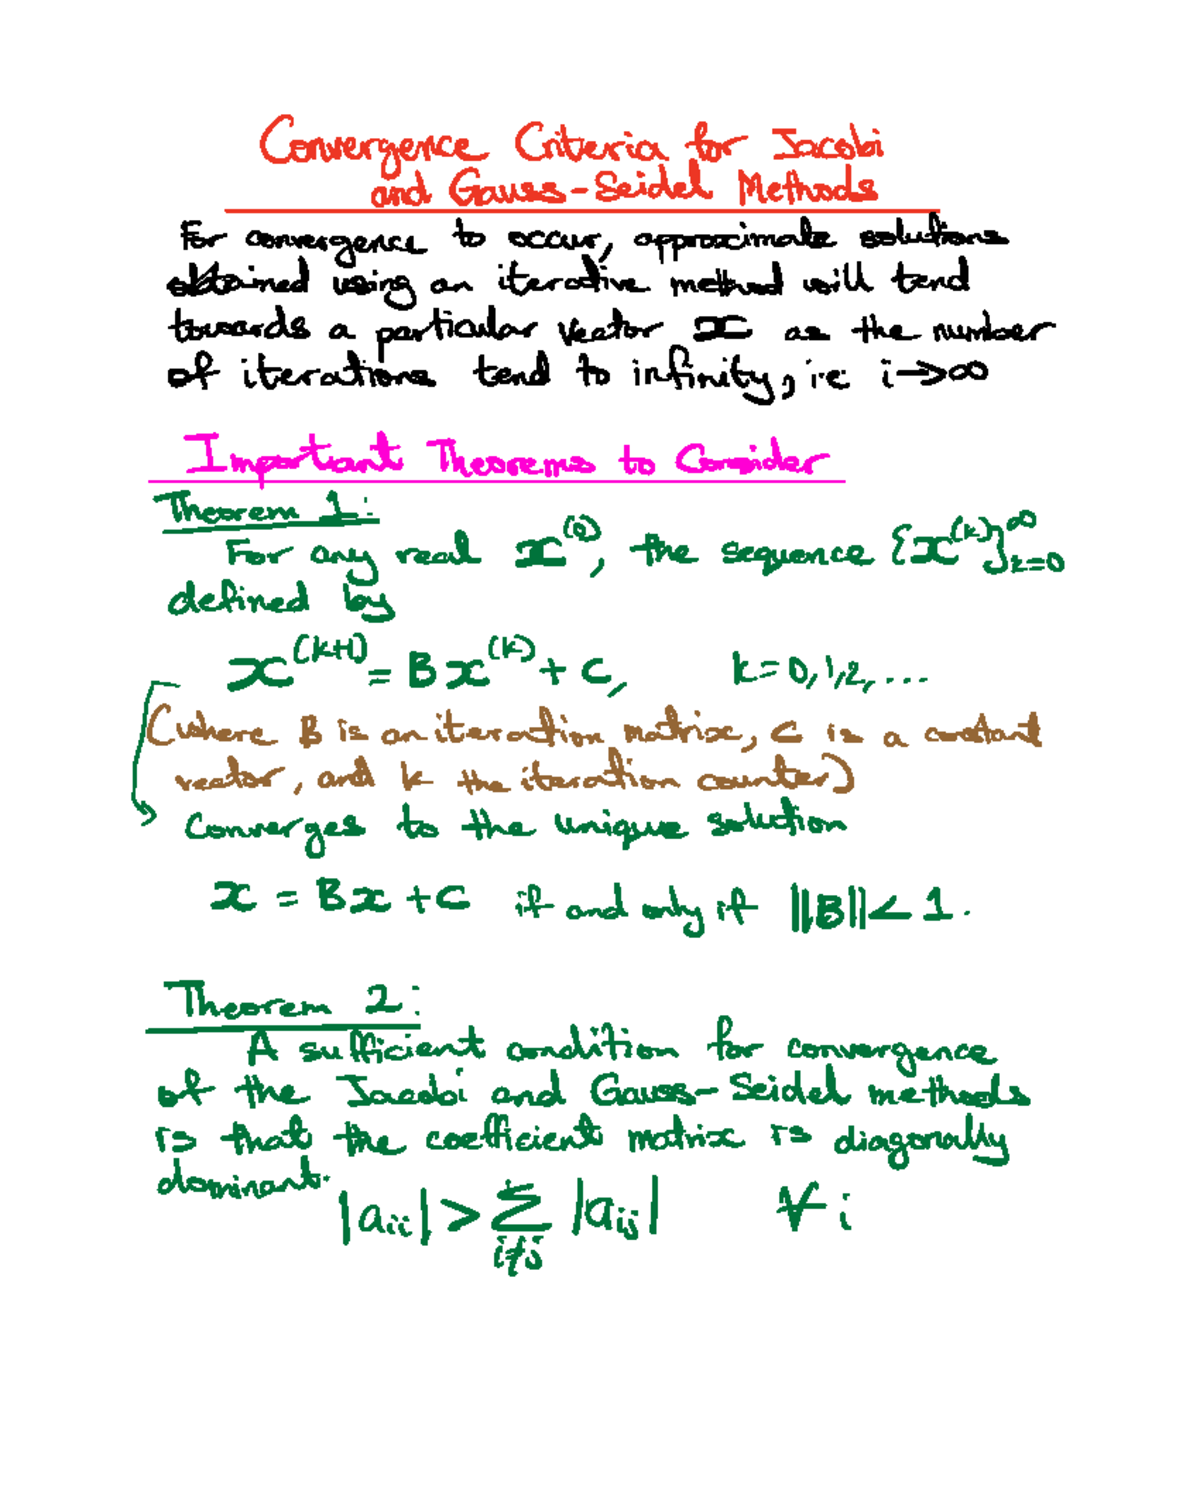 Convergence Criteria for Jacobi
and Gauss-Seidel Methods
For convergence to occur, approximate solutions
obtained using an iterative method will tend
towards a particular vector x as the number
of iterations tend to infinity, i.e i→∞
Important Theorems to Consider
Theorem 1:
For any real x^(0), the sequence {x^(k)}_{k=0}^∞
defined by
x^(k+1) = Bx^(k) + C, k=0,1,2,...
(where B is an iteration matrix, C is a constant
vector, and k the iteration counter)
Converges to the unique solution
x = Bx + C if and only if ||B|| < 1.
Theorem 2:
A sufficient condition for convergence
of the Jacobi and Gauss-Seidel methods
is that the coefficient matrix is diagonally
dominant.
|aii| > Σ |aij| ∀ i
i≠j